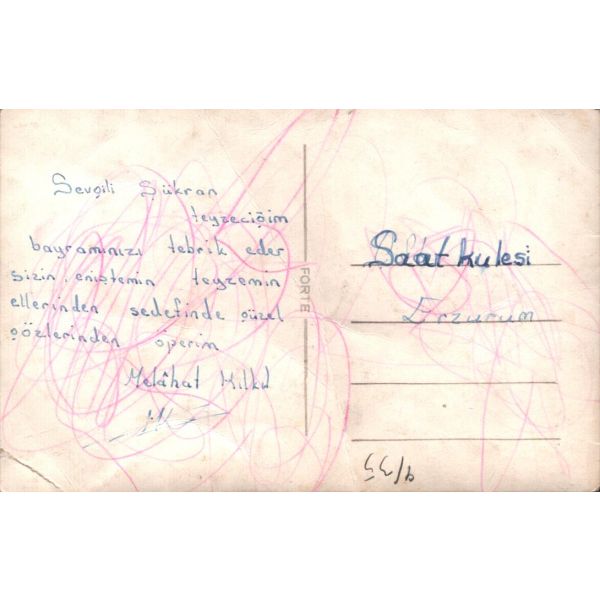 Sevgili Şükran
teyzeciğim
bayramınızı tebrik eder
sizin, eniştemin teyzemin
ellerinden sedefinde güzel
gözlerinden öperim
Melâhat
FORTE
Saat kulesi
Erzurum